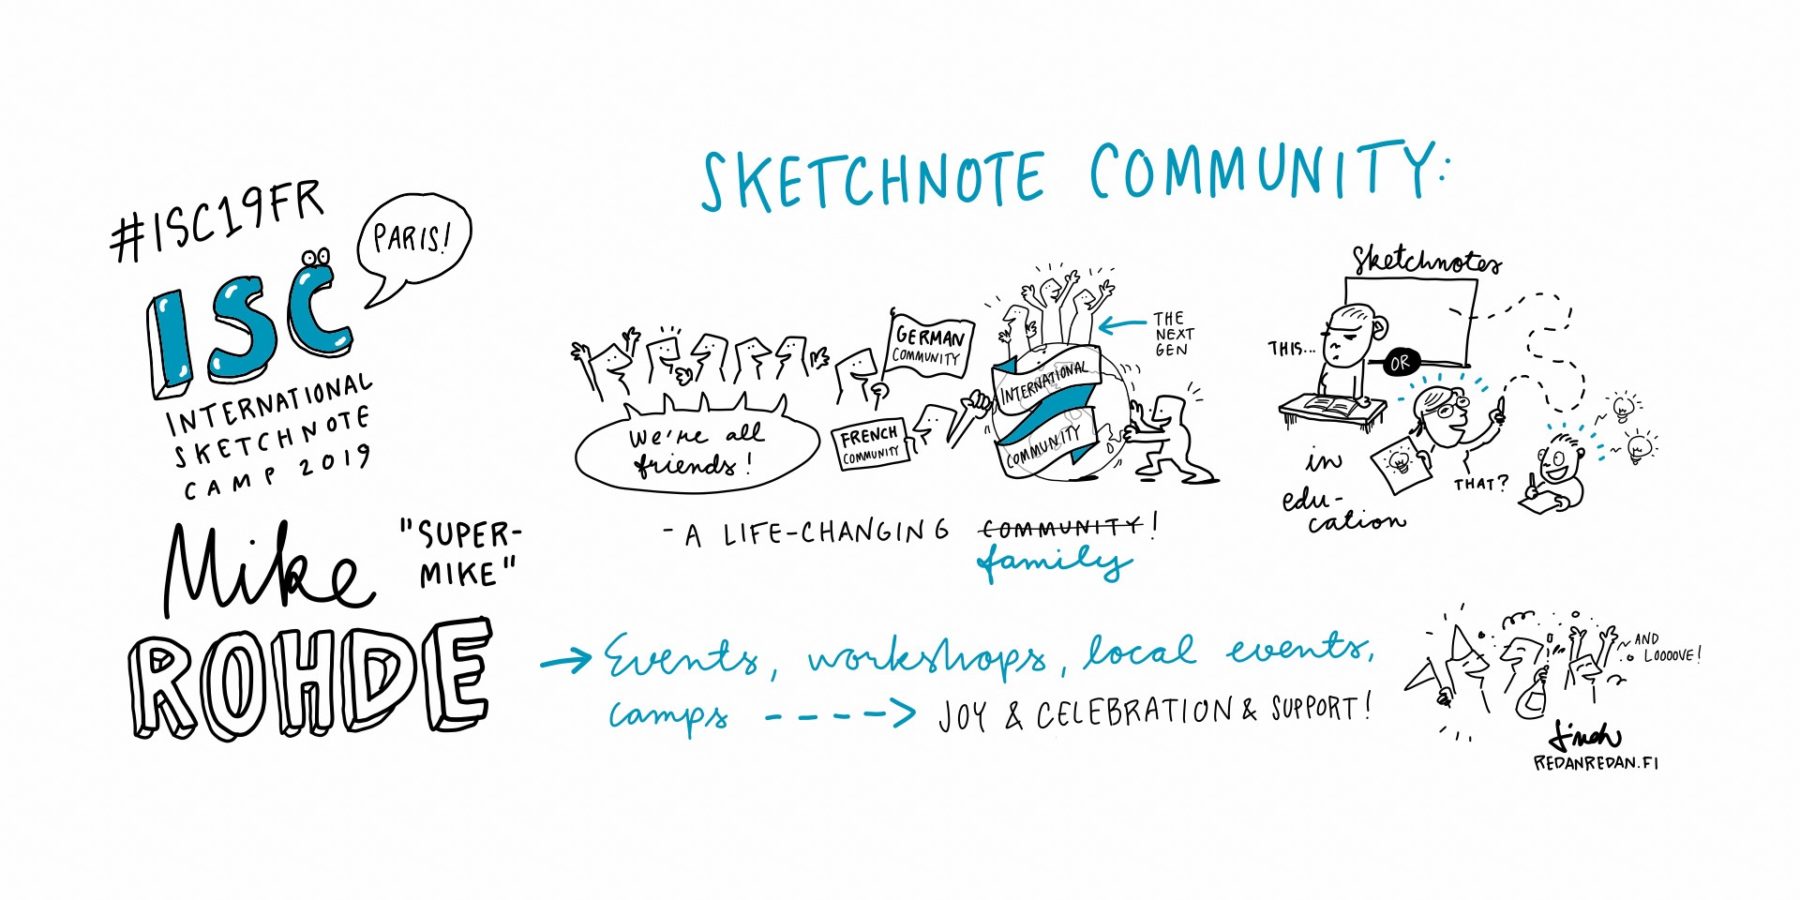 #ISC19FR
PARIS!
ISC
INTERNATIONAL
SKETCHNOTE
CAMP 2019
Mike
"SUPER-
MIKE"
ROHDE
SKETCHNOTE COMMUNITY:
We're all
friends!
GERMAN
COMMUNITY
FRENCH
COMMUNITY
INTERNATIONAL
COMMUNITY
THE
NEXT
GEN
- A LIFE-CHANGING COMMUNITY!
family
Sketchnotes
THIS...
OR
THAT?
in
edu-
cation
→ Events, workshops, local events,
camps ----> JOY & CELEBRATION & SUPPORT!
AND
LOOOOVE!
REDANREDAN.FI